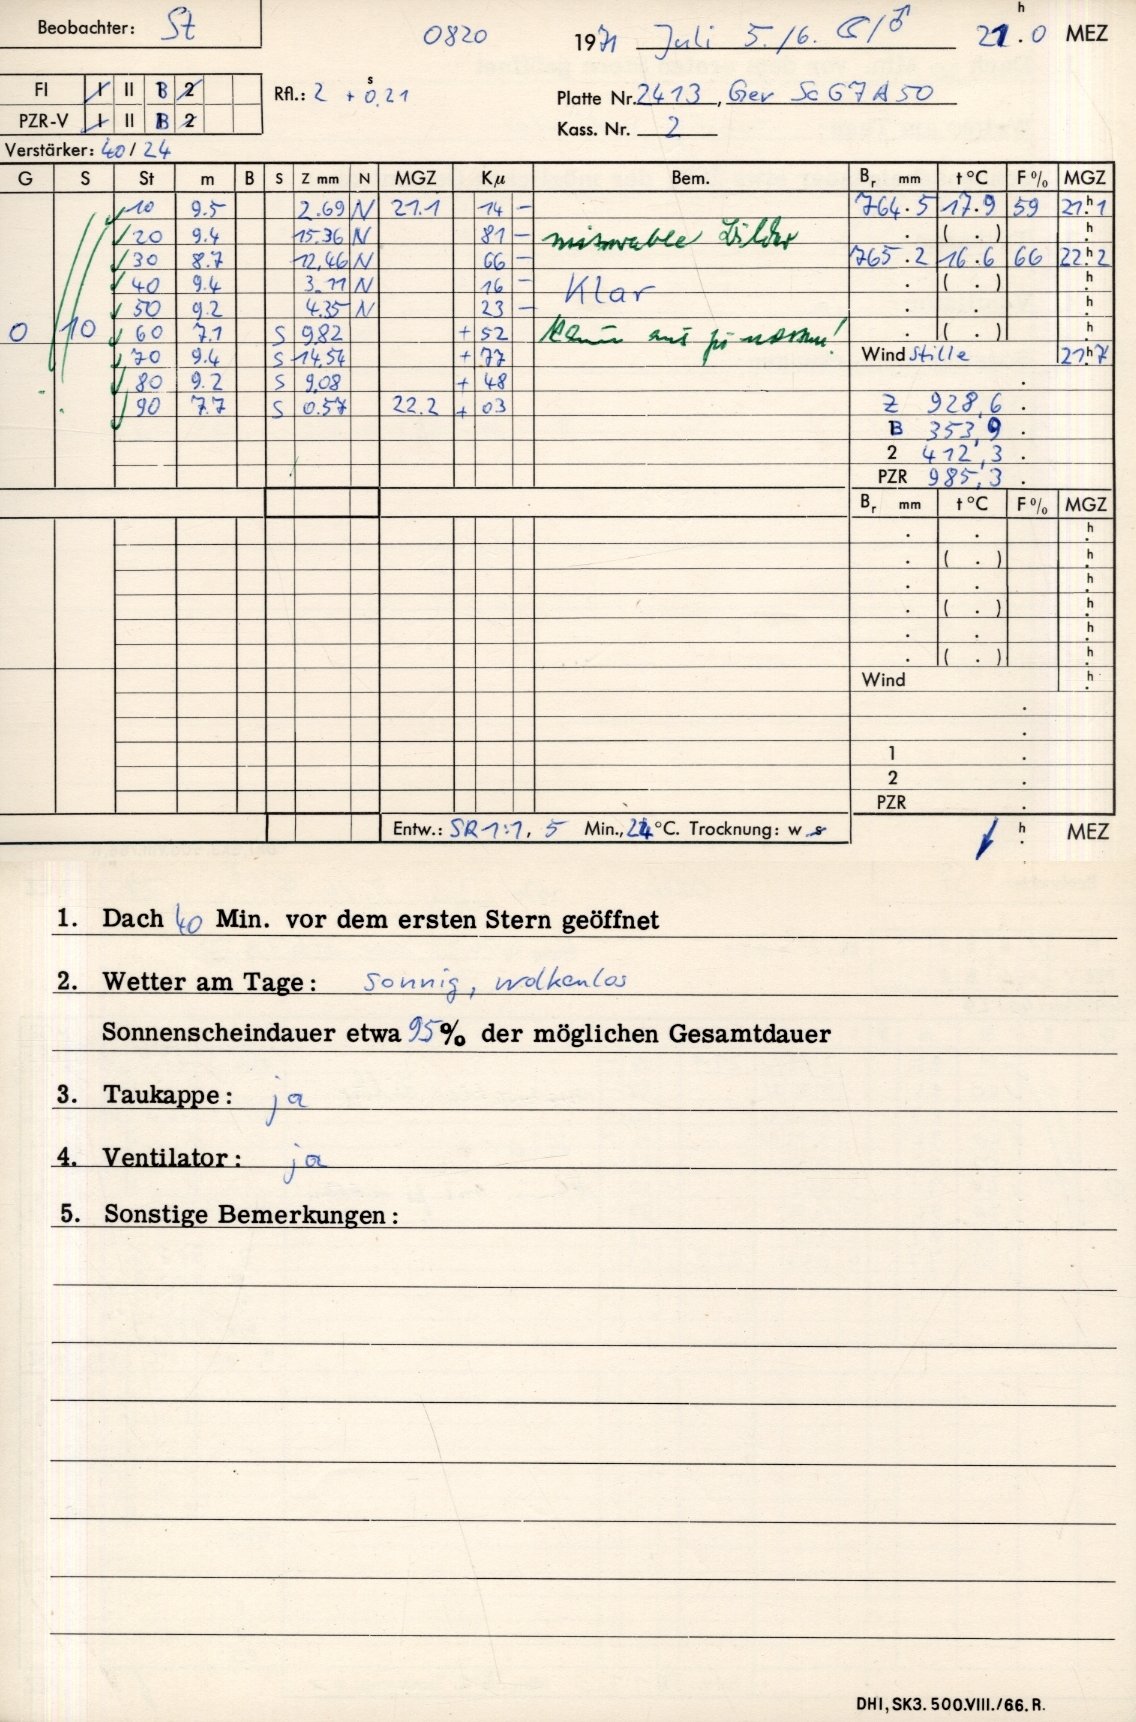 Beobachter: St
0820 1971 Juli 5./6. ☾/♂ 21.0 h MEZ
FI I II B 2
PZR-V I II B 2
Rfl.: 2 + 0.21 s
Platte Nr. 2413, Ger Sc G7A50
Kass. Nr. 2
Verstärker: 40 / 24
G S St m B S Z mm N MGZ Kμ Bem. Br mm t °C F % MGZ
10 9.5 2.69 N 21.1 14 – 764.5 17.9 59 21h1
20 9.4 15.36 N 81 – miserable Bilder . ( . ) h
30 8.7 12,46 N 66 – 765.2 16.6 66 22h2
40 9.4 3.11 N 16 – Klar . ( . ) h
50 9.2 4.35 N 23 – . . h
0 10 60 7.1 S 9,82 + 52 . ( . ) h
70 9.4 S 14,54 + 77 Wind Stille 21h7
80 9.2 S 9,08 + 48 .
90 7.7 S 0.57 22.2 + 03 Z 928,6 .
B 353,9 .
2 412,3 .
PZR 985,3 .
Br mm t °C F % MGZ
. . h
. ( . ) h
. . h
. ( . ) h
. . h
. ( . ) h
Wind h
.
.
1 .
2 .
PZR .
Entw.: SR 1:1, 5 Min., °C. Trocknung: w s h MEZ
1. Dach 40 Min. vor dem ersten Stern geöffnet
2. Wetter am Tage: sonnig, wolkenlos
Sonnenscheindauer etwa 95% der möglichen Gesamtdauer
3. Taukappe: ja
4. Ventilator: ja
5. Sonstige Bemerkungen:
DHI, SK3. 500.VIII./66. R.